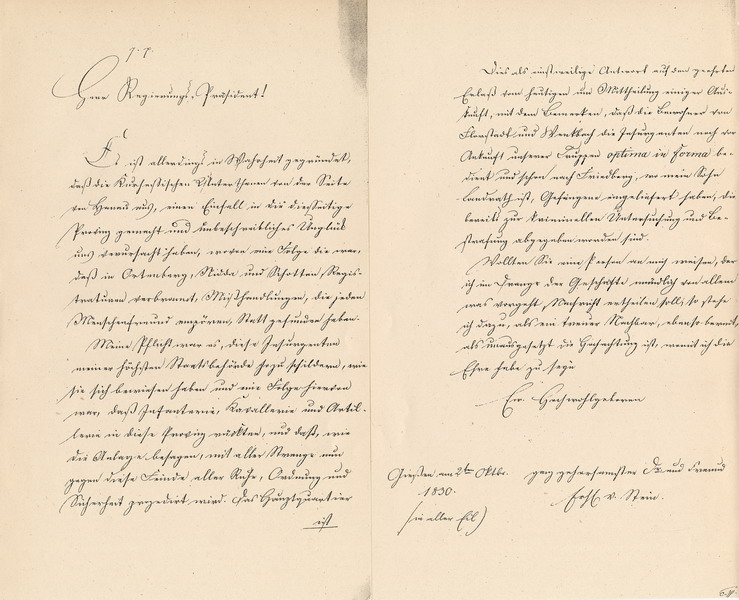 p. p.
Herr Regierungs-Präsident!
Es ist allerdings in Wahrheit gegründet,
daß die Kurhessischen Unterthanen von der Seite
von Hanau aus, einen Einfall in die diesseitige
Provinz gemacht und unbeschreibliches Unglück
uns verursacht haben, wovon eine Folge die war,
daß in Ortenberg, Nidda und Schotten, Regis-
traturen verbrannt, Mißhandlungen, die jeden
Menschenfreund empören, Statt gefunden haben.
Meine Pflicht war es, diese Insurgenten
meiner höchsten Staatsbehörde so zu schildern, wie
sie sich bewiesen haben und eine Folge hievon
war, daß Infanterie, Kavallerie und Artil-
lerie in diese Provinz rückten, und daß, wie
die Anlage besagen, mit aller Strenge nun
gegen diese Feinde aller Ruhe, Ordnung und
Sicherheit prozedirt wird. Das Hauptquartier
ist
Dies als einstweilige Antwort auf den geehrten
Erlaß vom heutigen um Mittheilung einiger Aus-
kunft, mit dem Bemerken, daß die Bewohner von
Florstadt und die Insurgenten noch vor
Ankunft unserer Truppen optima in forma be-
dient und schon nach Friedberg, wo mein Sohn
Landrath ist, Gefangene eingeliefert haben, die
bereits zur kriminellen Untersuchung und Be-
strafung abgegeben worden sind.
Wollten Sie eine Person an mich weisen, der
ich im Drange der Geschäfte mündlich von allem
was vorgeht, Nachricht ertheilen soll; so stehe
ich dazu, als ein treuer Nachbar, ebenso bereit,
als unausgesetzt die Hochachtung ist, womit ich die
Ehre habe zu seyn
Ew. Hochwohlgeboren
Gießen am 2ten Oktbr.
1830.
(in aller Eil)
ganz gehorsamster Dr und Freund
Frhl v. Stein.